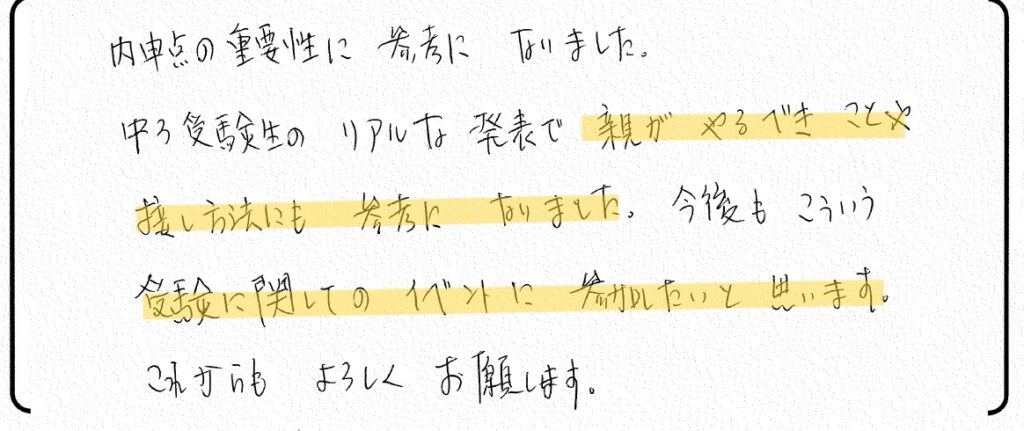 内申点の重要性に 参考に なりました。
中3受験生の リアルな 発表で 親が やるべき ことや
接し方法にも 参考に なりました。今後も こういう
受験に関しての イベントに 参加したいと 思います。
これからも よろしく お願します。